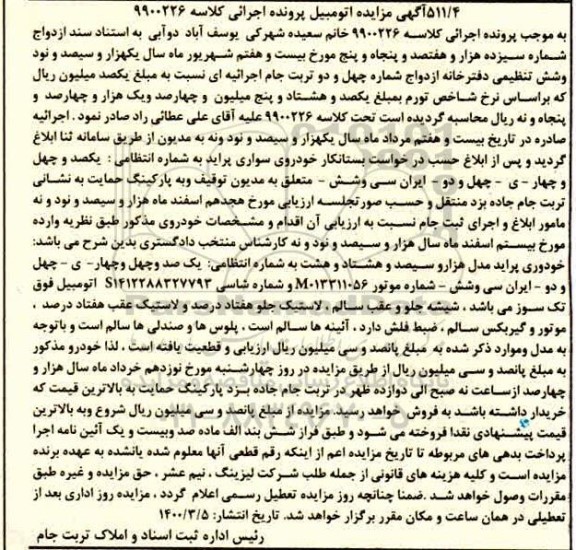 ۵۱۱/۴آگهی مزایده اتومبیل پرونده اجرائی کلاسه ۹۹۰۰۲۲۶
به موجب پرونده اجرائی کلاسـه ۹۹۰۰۲۲۶ خانم سعیده شهرکی یوسف آباد دوآبی به استناد سند ازدواج
شماره سیزده هزار و هفتصد و پنجاه و پنج مورخ بیست و هفتم شهریور ماه سال یکهزار و سیصد و نود
وشش تنظیمی دفترخانه ازدواج شماره چهل و دو تربت جام اجرائیه ای نسبت به مبلغ یکصد میلیون ریال
که براساس نرخ شاخص تورم بمبلغ یکصد و هشتاد و پنج میلیون و چهارصد ویک هزار و چهارصد و
پنجاه و نه ریال محاسبه گردیده است تحت کلاسه ۹۹۰۰۲۲۶ علیه آقای علی عطائی راد صادر نمود . اجرائیه
صادره در تاریخ بیست و هفتم مرداد ماه سال یکهزار و سیصد و نود ونه به مدیون از طریق سامانه ثنا ابلاغ
گردید و پس از ابلاغ حسب در خواست بستانکار خودروی سواری پراید به شماره انتظامی : یکصد و چهل
و چهار - ی - چهل و دو - ایران سی وشش - متعلق به مدیون توقیف وبه پارکینگ حمایت به نشانی
تربت جام جاده یزد منتقل و حسب صورتجلسه ارزیابی مورخ هجدهم اسفند ماه هزار و سیصد و نود و نه
مامور ابلاغ و اجرای ثبت جام نسبت به ارزیابی آن اقدام و مشخصات خودروی مذکور طبق نظریه وارده
مورخ بیستم اسفند ماه سال هزار و سیصد و نود و نه کارشناس منتخب دادگستری بدین شرح می باشد:
خودوری پراید مدل هزارو سیصد و هشتاد و هشت به شماره انتظامی: یک صد وچهل وچهار- ی - چهل
و دو - ایران سی وشش - شماره موتور M۰۱۳۳۱۱۰۵۶ و شماره شاسی S۱۴۱۲۲۸۸۳۲۷۷۹۳ اتومبیل فوق
تک سوز می باشد ، شیشه جلو و عقب سالم ، لاستیک جلو هفتاد درصد و لاستیک عقب هفتاد درصد ،
موتور و گیربکس سالم ، ضبط فلش دارد ، آئینه ها سالم است ، پلوس ها و صندلی ها سالم است و باتوجه
به مدل وموارد ذکر شده به مبلغ پانصد وسی میلیون ریال ارزیابی و قطعیت یافته است ، لذا خودرو مذکور
به مبلغ پانصد و سی میلیون ریال از طریق مزایده در روز چهارشنبه مورخ نوزدهم خرداد ماه سال هزار و
چهارصد ازساعت نه صبح الی دوازده ظهر در تربت جام جاده یزد پارکینگ حمایت به بالاترین قیمت که
خریدار داشته باشد به فروش خواهد رسید. مزایده از مبلغ پانصد و سی میلیون ریال شروع وبه بالاترین
قیمت پیشنهادی نقدا فروخته می شود و طبق فراز شش بند الف ماده صد وبیست و یک آئین نامه اجرا
پرداخت بدهی های مربوطه تا تاریخ مزایده اعم از اینکه رقم قطعی آنها معلوم شده یانشده به عهده برنده
مزایده است و کلیه هزینه های قانونی از جمله طلب شرکت لیزینگ ، نیم عشر ، حق مزایده و غیره طبق
مقررات وصول خواهد شد .ضمنا چنانچه روز مزایده تعطیل رسمی اعلام گردد ، مزایده روز اداری بعد از
تعطیلی در همان ساعت و مکان مقرر برگزار خواهد شد. تاریخ انتشار: ۱۴۰۰/۳/۵
رئیس اداره ثبت اسناد و املاک تربت جام